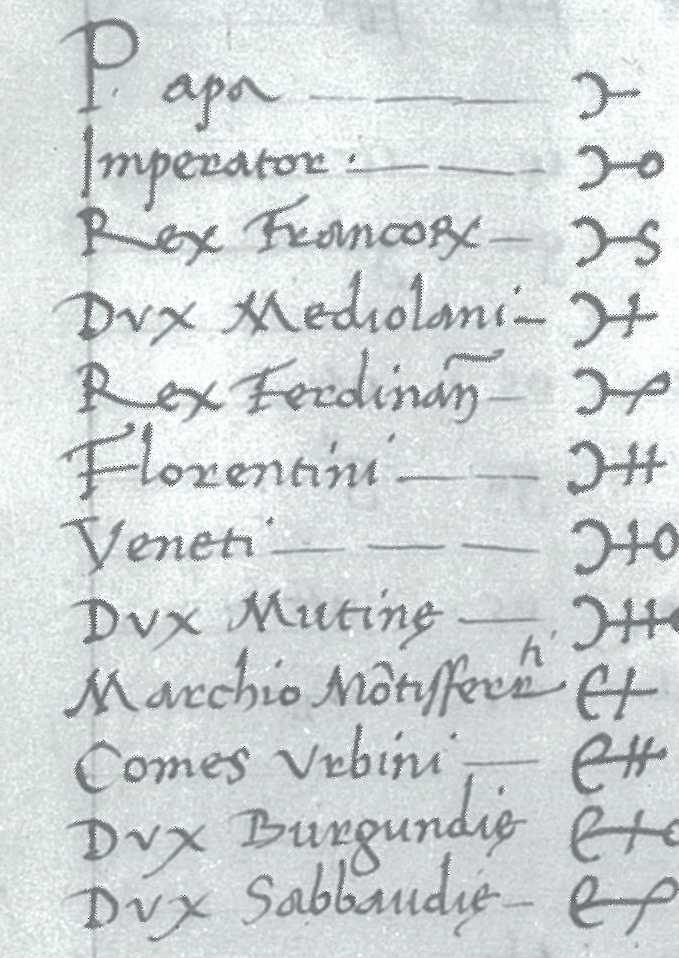 Papa
Imperator
Rex Francoꝝ
Dvx Mediolani
Rex Ferdinan̄
Florentini
Veneti
Dvx Mutinę
Marchio Mōtisferrti
Comes Vrbini
Dvx Burgundię
Dvx Sabbaudię